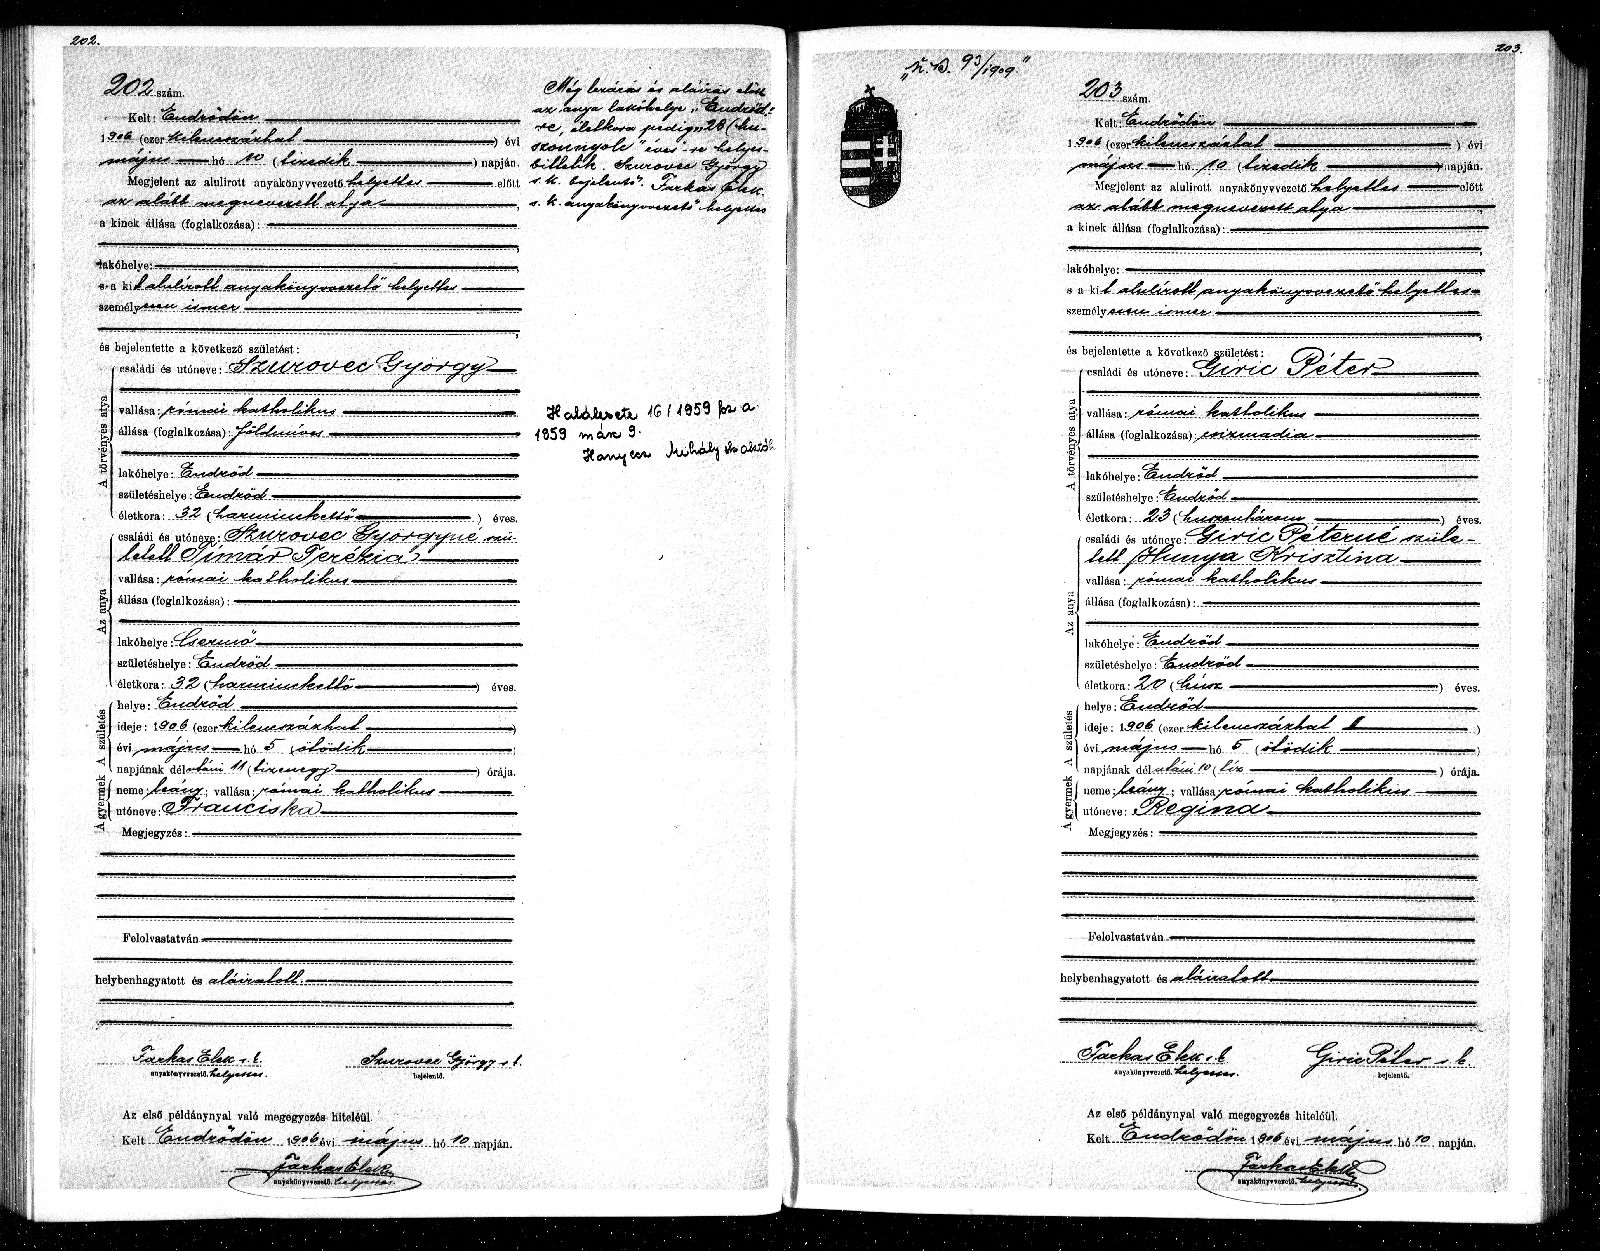 202.
202 szám.
Kelt: Endrődön
1906 (ezer kilenczázhat ) évi
május hó 10 (tizedik ) napján.
Megjelent az alulirott anyakönyvvezető helyettes előtt
az alább megnevezett atya ,
a kinek állása (foglalkozása):
lakóhelye:
s a kit alulírott anyakönyvvezető helyettes
személyesen ismer
és bejelentette a következő születést:
A törvényes atya
családi és utóneve: Szurovec György
vallása: római katholikus
állása (foglalkozása): földmíves
lakóhelye: Endrőd
születéshelye: Endrőd
életkora: 32 (harminckettő ) éves.
Az anya
családi és utóneve: Szurovec Györgyné szü-
letett Tímár Terézia
vallása: római katholikus
állása (foglalkozása):
lakóhelye: Csermő
születéshelye: Endrőd
életkora: 32 (harminckettő ) éves.
A születés
helye: Endrőd
ideje: 1906 (ezer kilenczázhat )
évi május hó 5 (ötödik )
napjának délutáni 11 (tizenegy ) órája.
A gyermek
neme: leány; vallása: római katholikus
utóneve: Franciska
Megjegyzés:
Felolvastatván
helybenhagyatott és aláiratott.
Farkas Elek s. k. Szurovec György s. k.
anyakönyvvezető. helyettes. bejelentő.
Az első példánynyal való megegyezés hiteléül.
Kelt Endrődön 1906 évi május hó 10 napján.
Farkas Elek
anyakönyvvezető. helyettes.
Még lezárás és aláírás előtt
az anya lakóhelye „Endrőd”-
re, életkora pedig „28 (hu-
szonnyolc” éves”-re helyes-
bíttetik. Szurovec György
s. k. bejelentő”. Farkas Elek
s. k. anyakönyvvezető helyettes
Halálesete 16/1959 fsz a
1959 már 9.
Hanyecz Mihály
203.
„N. B. 93/1909.”
203 szám.
Kelt: Endrődön
1906 (ezer kilenczázhat ) évi
május hó 10 (tizedik ) napján.
Megjelent az alulirott anyakönyvvezető helyettes előtt
az alább megnevezett atya
a kinek állása (foglalkozása):
lakóhelye:
s a kit alulírott anyakönyvvezető helyettes
személyesen ismer
és bejelentette a következő születést:
A törvényes atya
családi és utóneve: Giric Péter
vallása: római katholikus
állása (foglalkozása): csizmadia
lakóhelye: Endrőd
születéshelye: Endrőd
életkora: 23 (huszonhárom ) éves.
Az anya
családi és utóneve: Giric Péterné szüle-
tett Hunya Krisztina
vallása: római katholikus
állása (foglalkozása):
lakóhelye: Endrőd
születéshelye: Endrőd
életkora: 20 (húsz ) éves.
A születés
helye: Endrőd
ideje: 1906 (ezer kilenczázhat )
évi május hó 5 (ötödik )
napjának délutáni 10 (tíz ) órája.
A gyermek
neme: leány; vallása: római katholikus
utóneve: Regina
Megjegyzés:
Felolvastatván
helybenhagyatott és aláiratott
Farkas Elek s. k. Giric Péter s. k.
anyakönyvvezető. helyettes. bejelentő.
Az első példánynyal való megegyezés hiteléül.
Kelt Endrődön 1906 évi május hó 10 napján.
Farkas Elek
anyakönyvvezető. helyettes.